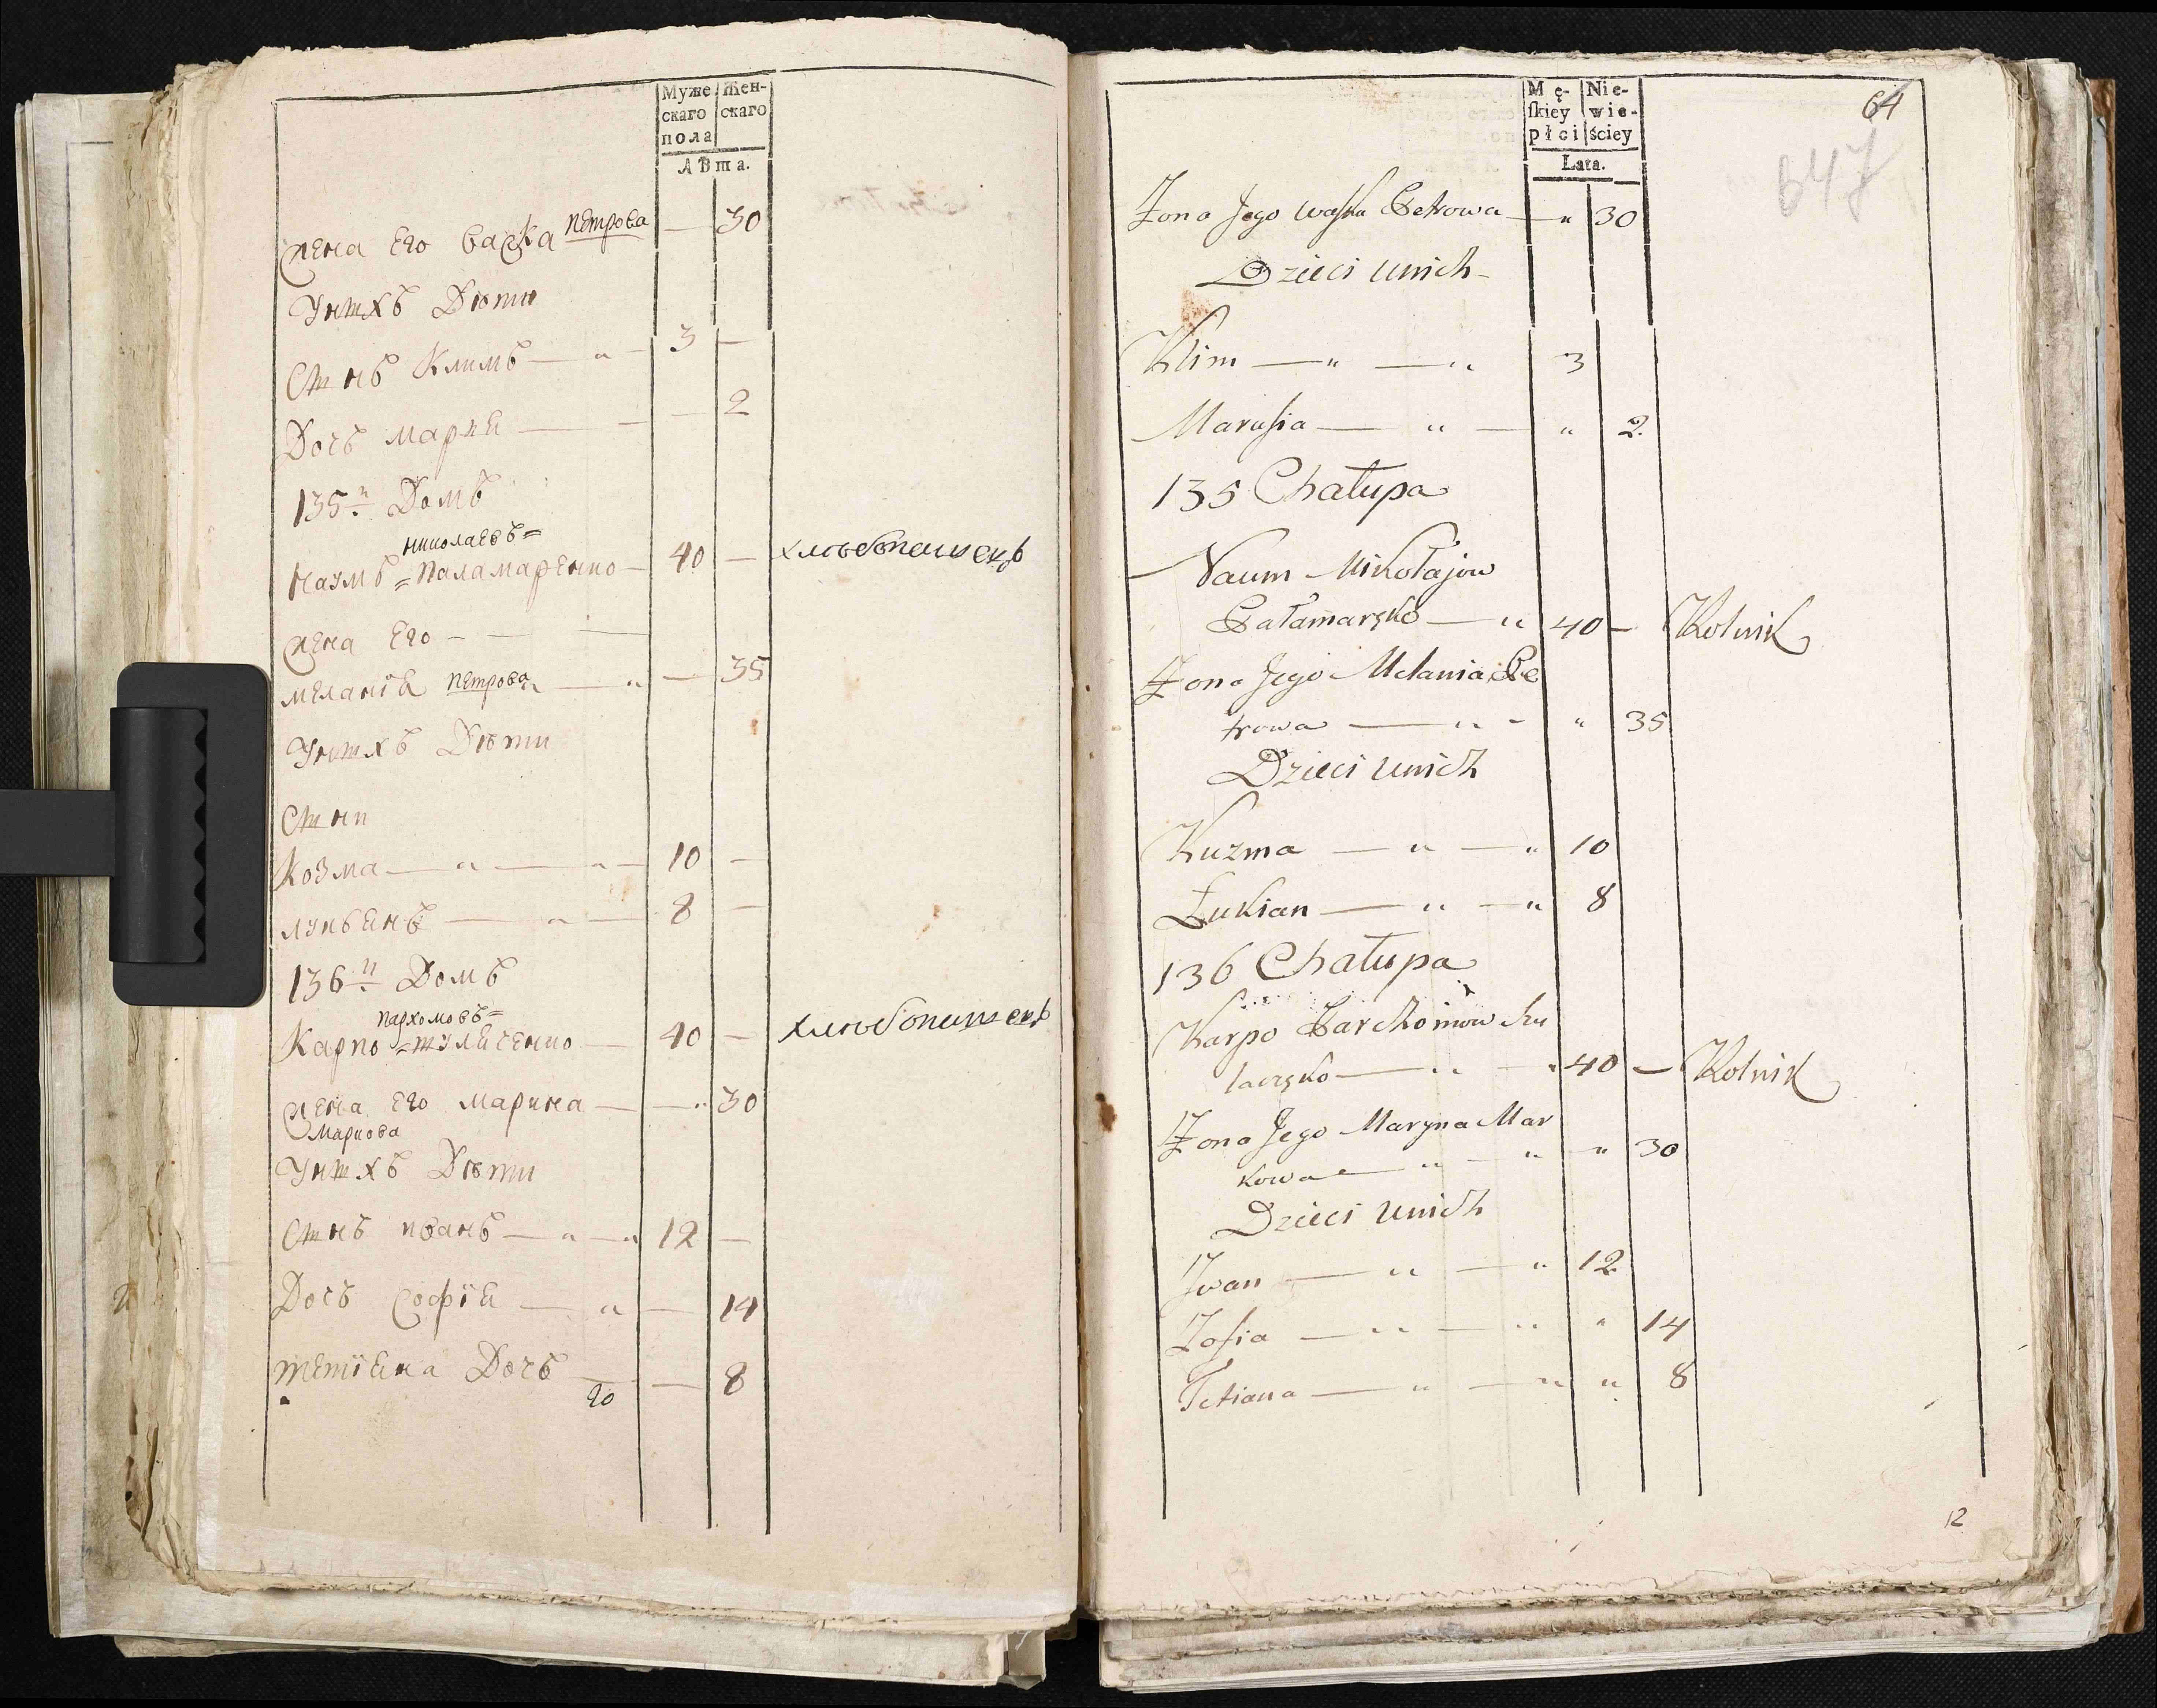 Муже
скаго
пола
Жен-
скаго
Лѣта.
жена Его Васка Петрова — 30
Унихъ Дѣти
Сынъ Климъ — 3 —
Дочь Марья — — 2
135й Домъ
Николаевъ=
Наумъ = Паламаренко — 40 — хлѣбопашецъ
жена Его —
Меланія Петрова — — 35
Унихъ Дѣти
Сыни
Козма — 10 —
Лукьянъ — 8 —
136й Домъ
Пархомовъ=
Карпо = 40 — хлѣбопашецъ
жена Его Марина — — 30
Маркова
Унихъ Дѣти
Сынъ Иванъ — 12 —
Дочь Софія — — 14
Тетіяна Дочь — — 8
Mę-
ſkiey
płci
Nie-
wie-
ściey
Lata.
64
647
Zona Jego Waſka Petrowa — " 30
Dzieci unich
Klim — " — " 3
Maruſia — " — " 2.
135 Chałupa
Naum Mikołajow
Pałamaręko — " 40 — Rolnik
Zona Jego Melania Pe
trowa — " - " 35
Dzieci unich
Kuzma — " — " 10
Łukian — " — " 8
136 Chałupa
Karpo Parchomow
40 — Rolnik
Zona Jego Maryna Mar
kowa — " — " " 30
Dzieci unich
Iwan — " — " 12
Zofia — " — " " 14
Tetiana — " — " " 8
12